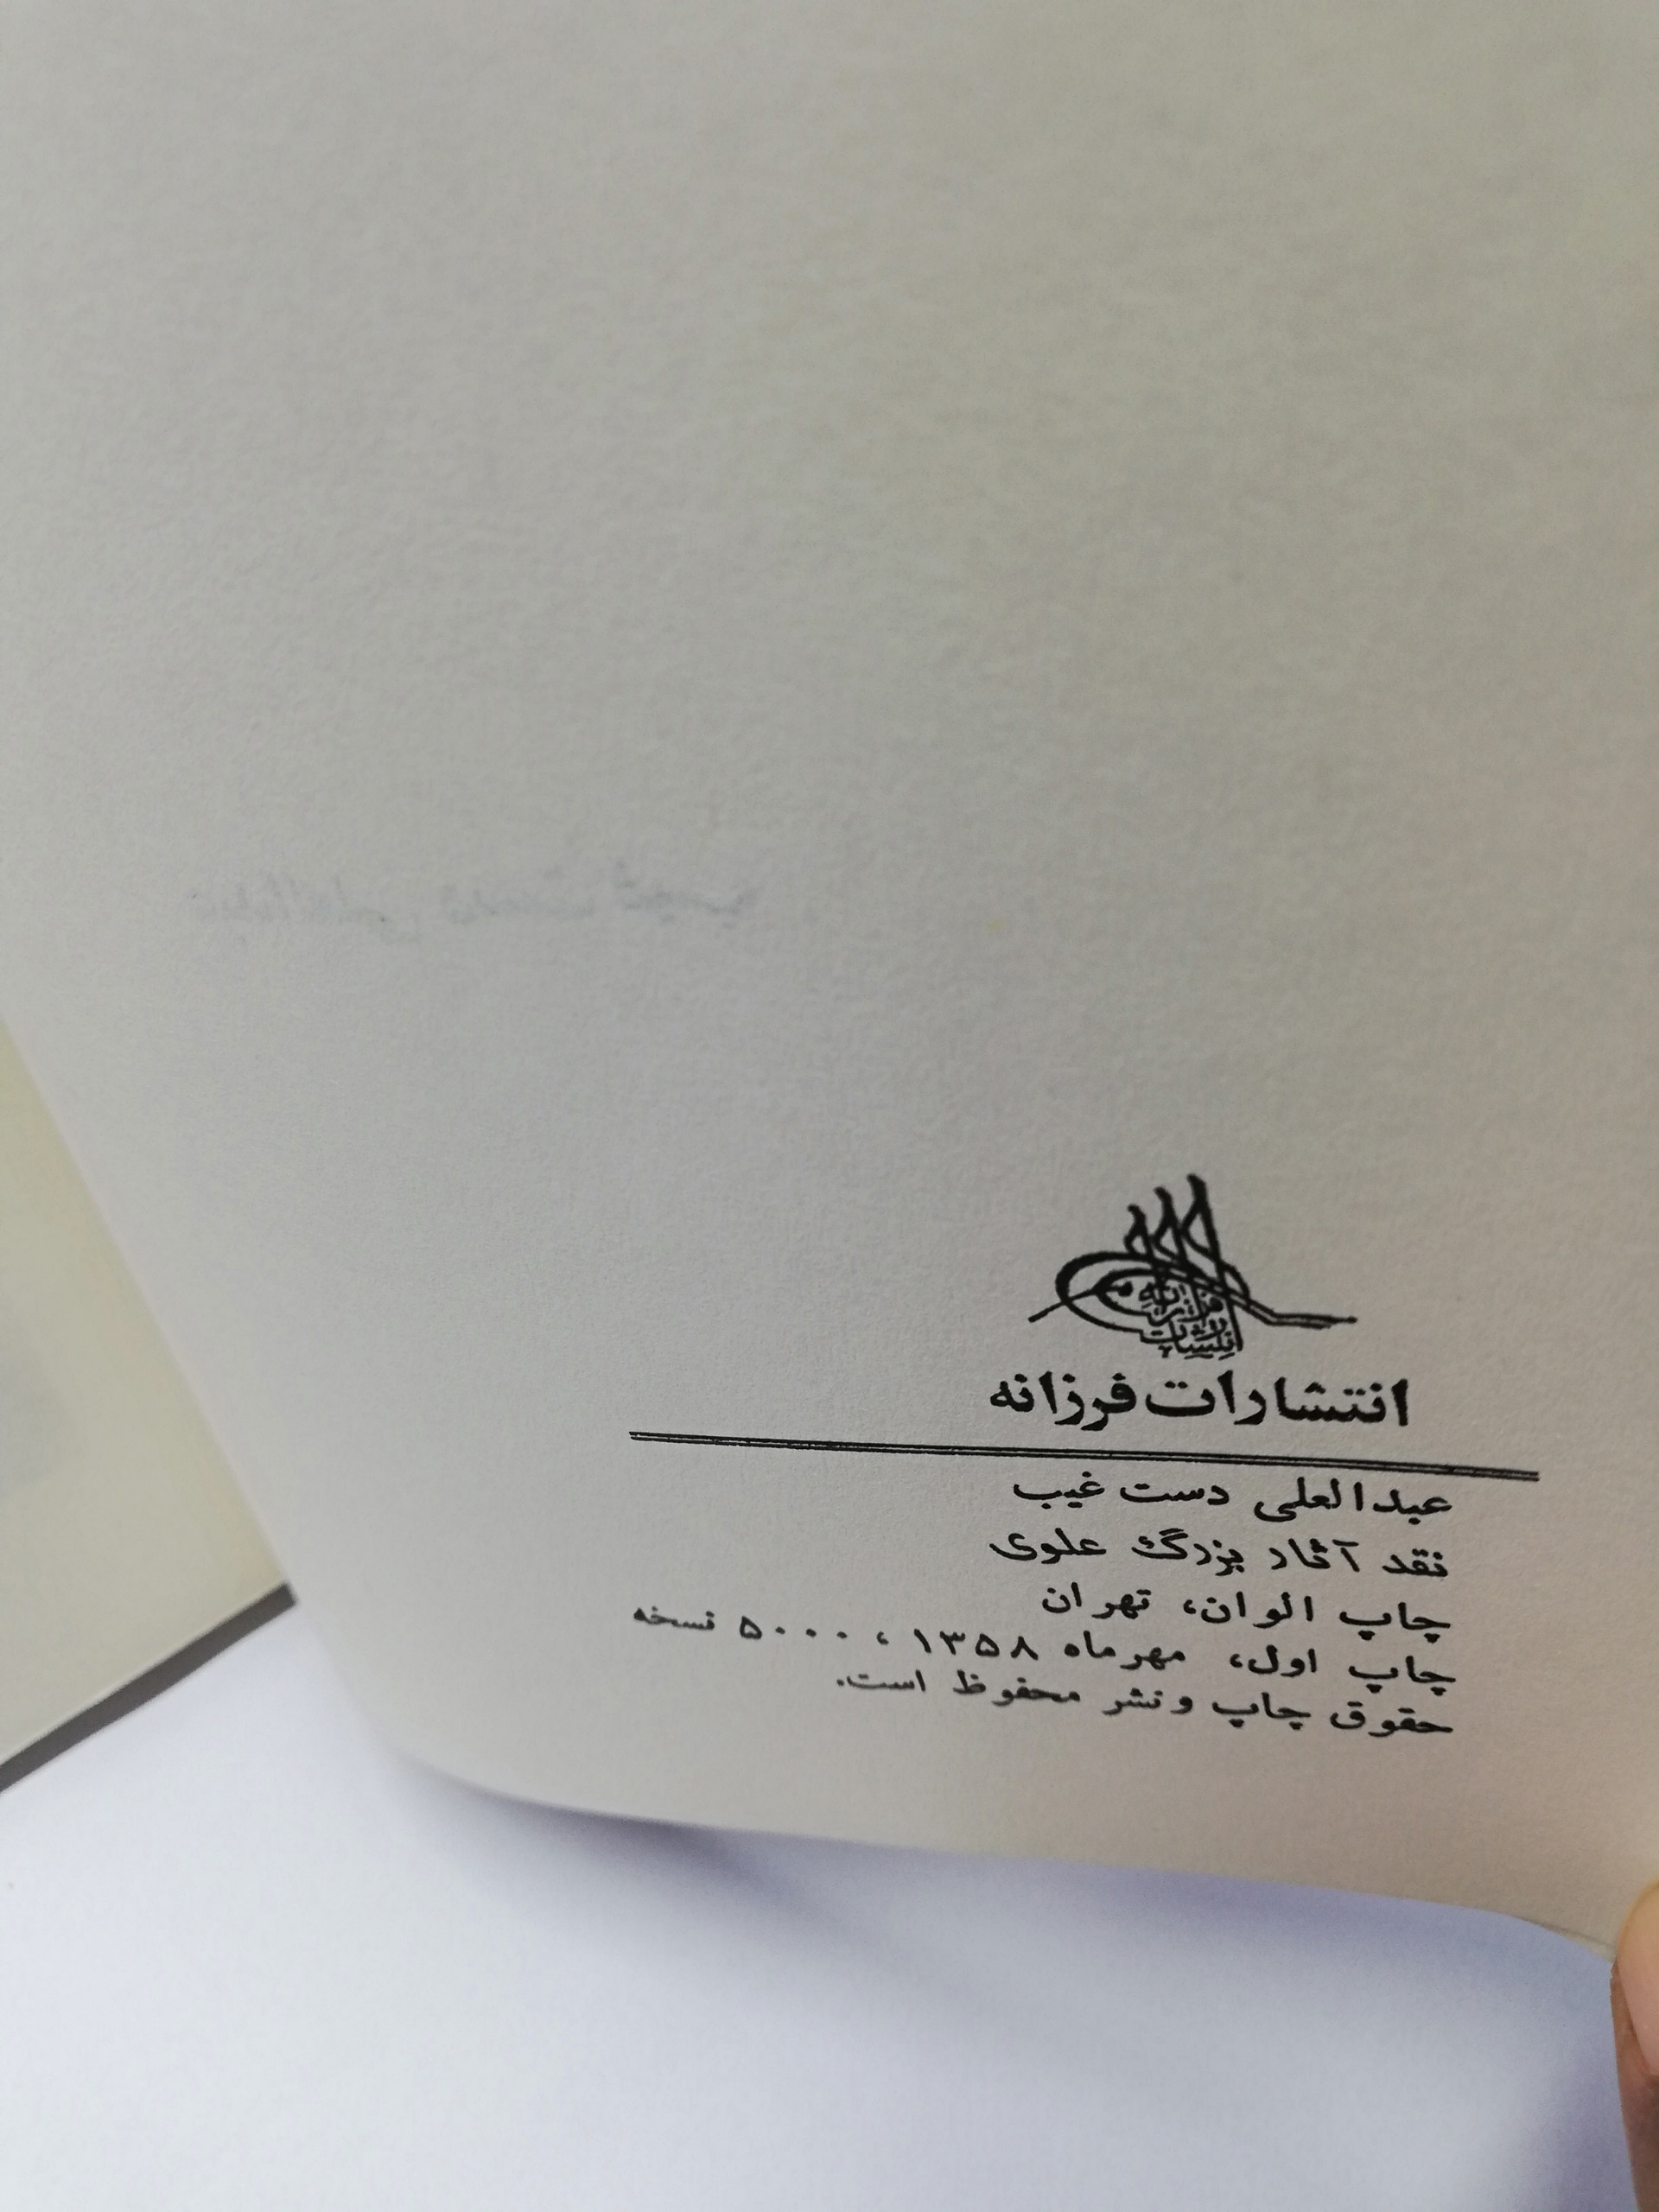 انتشارات فرزانه
انتشارات فرزانه
عبدالعلی دست غیب
نقد آثار بزرگ علوی
چاپ الوان، تهران
چاپ اول، مهرماه ۱۳۵۸، ۵۰۰۰ نسخه
حقوق چاپ ونشر محفوظ است.